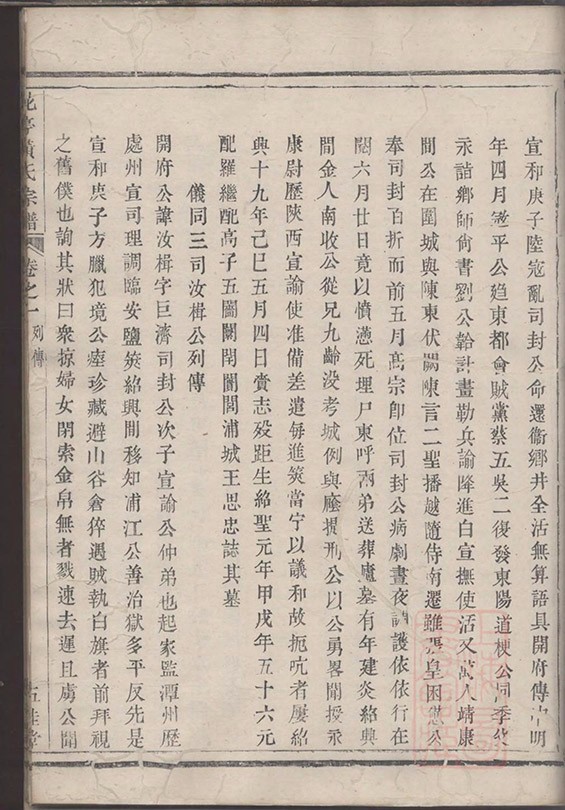 宣和庚子陸寇亂司封公命還衞鄉井全活無算語具開府傳中明
年四月寇平公趋東都會賊黨蔡五吳二復發東陽道梗公同季父
永詣鄉師尙書劉公韐計畫勒兵諭降進白宣撫使活又萬人靖康
間公在圍城與陳東伏闕陳言二聖播越隨侍南遷雖張皇困憊公
奉司封百折而前五月高宗卽位司封公病劇晝夜調護依依行在
閱六月廿日竟以憤懣死埋尸東呼兩弟送葬廬墓有年建炎紹興
間金人南收公從兄九齡没考城例與廕提刑公以公勇畧聞授永
康尉歷陝西宣諭使准備差遣每進筴當宁以議和故扼吭者屢紹
興十九年己巳五月四日賫志殁距生紹聖元年甲戌年五十六元
配羅繼配高子五闓闢閈闇閭浦城王思忠誌其墓
儀同三司汝楫公列傳
開府公諱汝楫字巨濟司封公次子宣諭公仲弟也起家監潭州歷
處州宣司理調臨安鹽筴紹興間移知浦江公善治獄多平反先是
宣和庚子方臘犯境公瘗珍藏避山谷倉猝遇賊執白旗者前拜視
之舊僕也詢其狀曰衆掠婦女閉索金帛無者戮速去遲且虜公聞
黄氏宗譜
卷之一
列傳